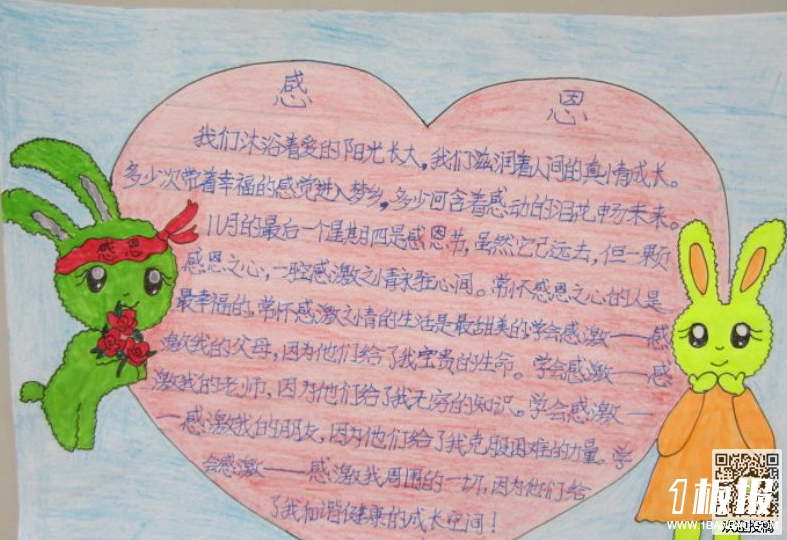 感 恩
我们沐浴着爱的阳光长大,我们滋润着人间的真情成长。
多少次带着幸福的感觉进入梦乡,多少回含着感动的泪花畅未来。
11月的最后一个星期四是感恩节,虽然它已远去,但一颗
感恩之心,一腔感激之情永驻心间。常怀感恩之心的人是
最幸福的,常怀感激之情的生活是最甜美的,学会感激——感
激我的父母,因为他们给了我宝贵的生命。学会感激——感
激我的老师,因为他们给了我无穷的知识。学会感激—
—感激我的朋友,因为他们给了我克服困难的力量。学
会感激——感激我周围的一切,因为他们给
了我和谐健康的成长空间!
感恩
1板报
WWW.1BANBAO.COM
欢迎投稿